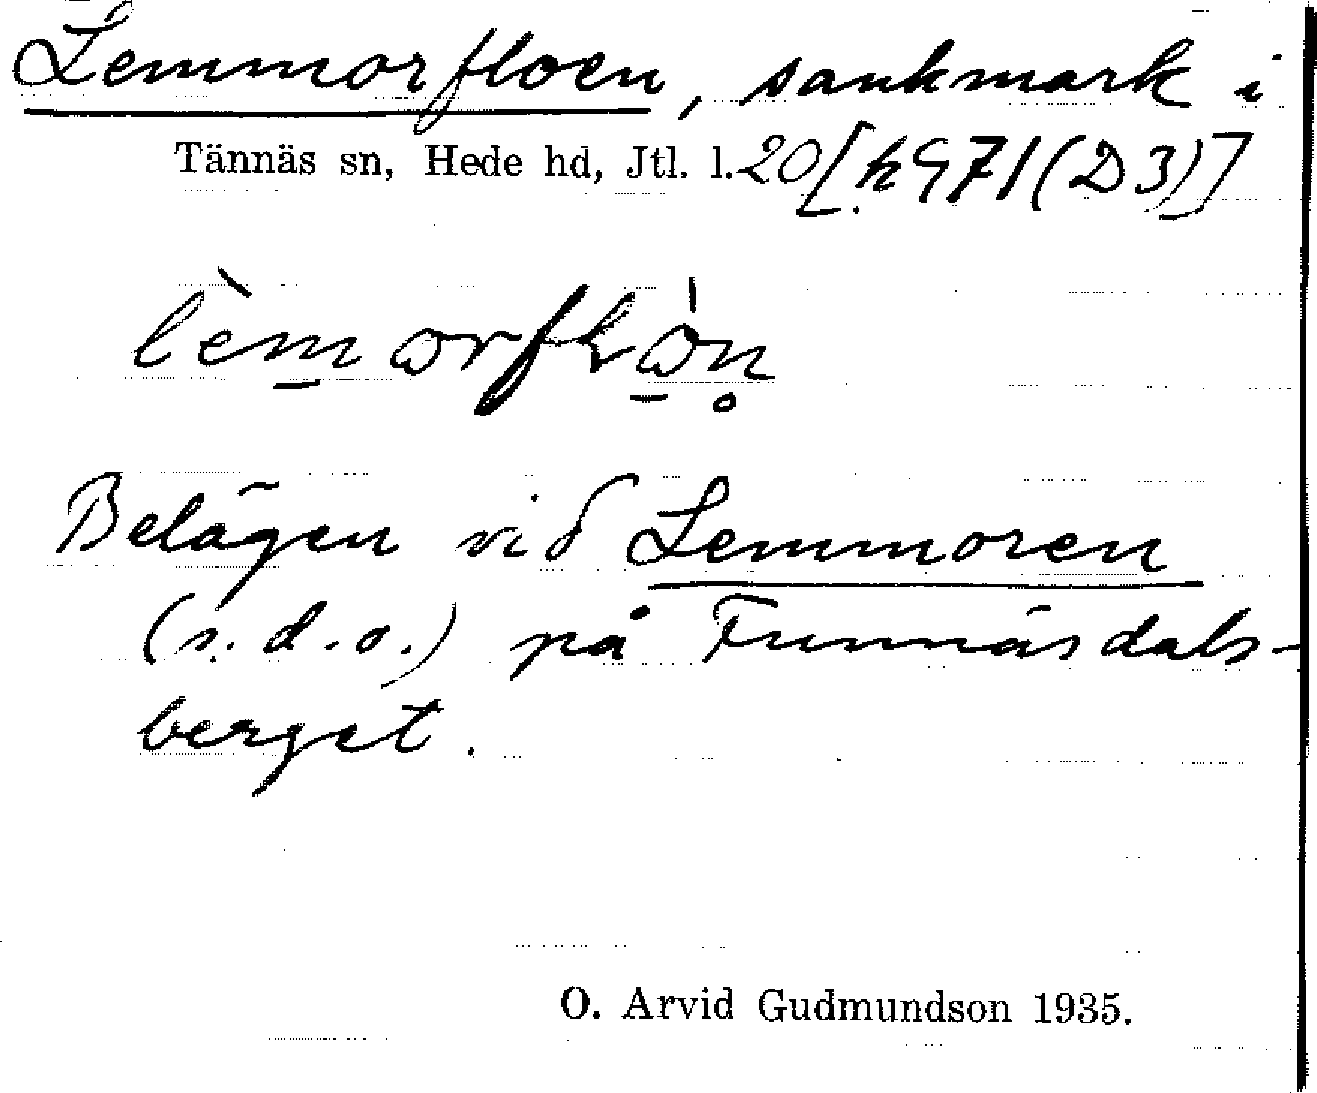 Lemmorfloen, sankmark i
Tännäs sn, Hede hd, Jtl. l. 20 [h971(D3)]
Belägen vid Lemmoren
(s.d.o.) på Funnäsdals-
berget.
O. Arvid Gudmundson 1935.